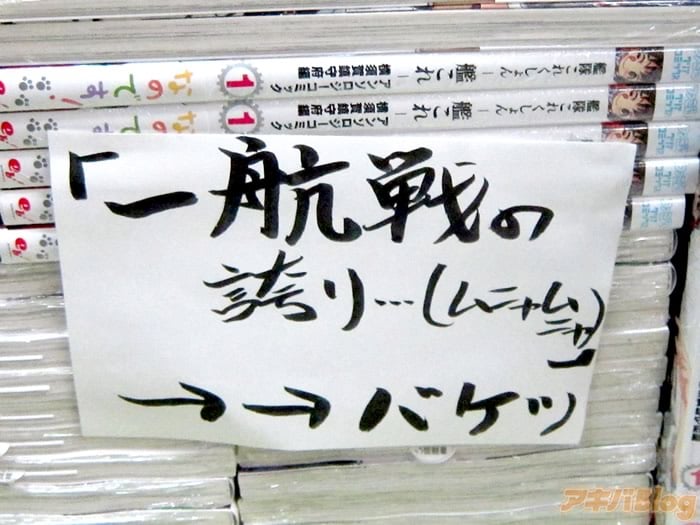 艦隊これくしょん ー艦これー アンソロジーコミック 横須賀鎮守府編 1 なのです!
艦隊これくしょん ー艦これー アンソロジーコミック 横須賀鎮守府編 1
「一航戦の
誇り…(ムニャムニャ)」
→→バケツ
アキバBlog